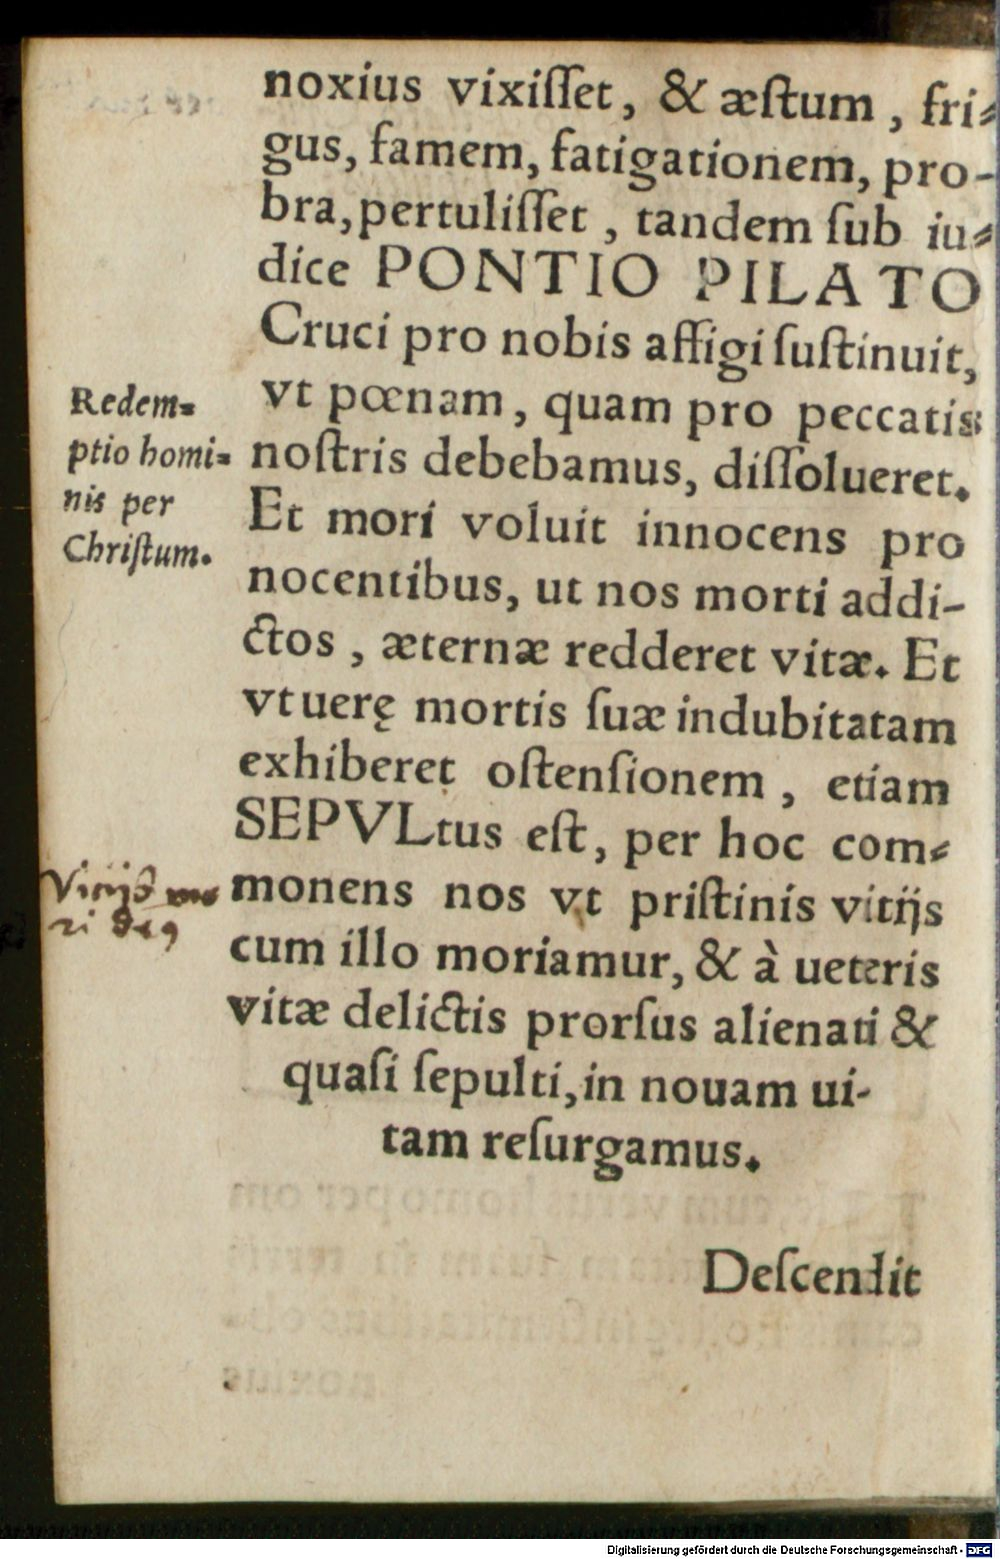 noxius vixiſſet, & æſtum, fri⸗
gus, famem, fatigationem, pro-
bra, pertuliſſet, tandem ſub iu⸗
dice PONTIO PILATO
Cruci pro nobis affigi ſuſtinuit,
vt pœnam, quam pro peccatis
noſtris debebamus, diſſolueret.
Et mori voluit innocens pro
nocentibus, ut nos morti addi-
ctos, æternæ redderet vitæ. Et
vt uerę mortis ſuæ indubitatam
exhiberet oſtenſionem, etiam
SEPVLtus eſt, per hoc com⸗
monens nos vt priſtinis vitijs
cum illo moriamur, & à ueteris
vitæ delictis prorſus alienati &
quaſi ſepulti, in nouam ui-
tam reſurgamus.
Deſcendit
Redem⸗
ptio homi⸗
nis per
Chriſtum.
Vitijs mo
ri
Digitalisierung gefördert durch die Deutsche Forschungsgemeinschaft - DFG